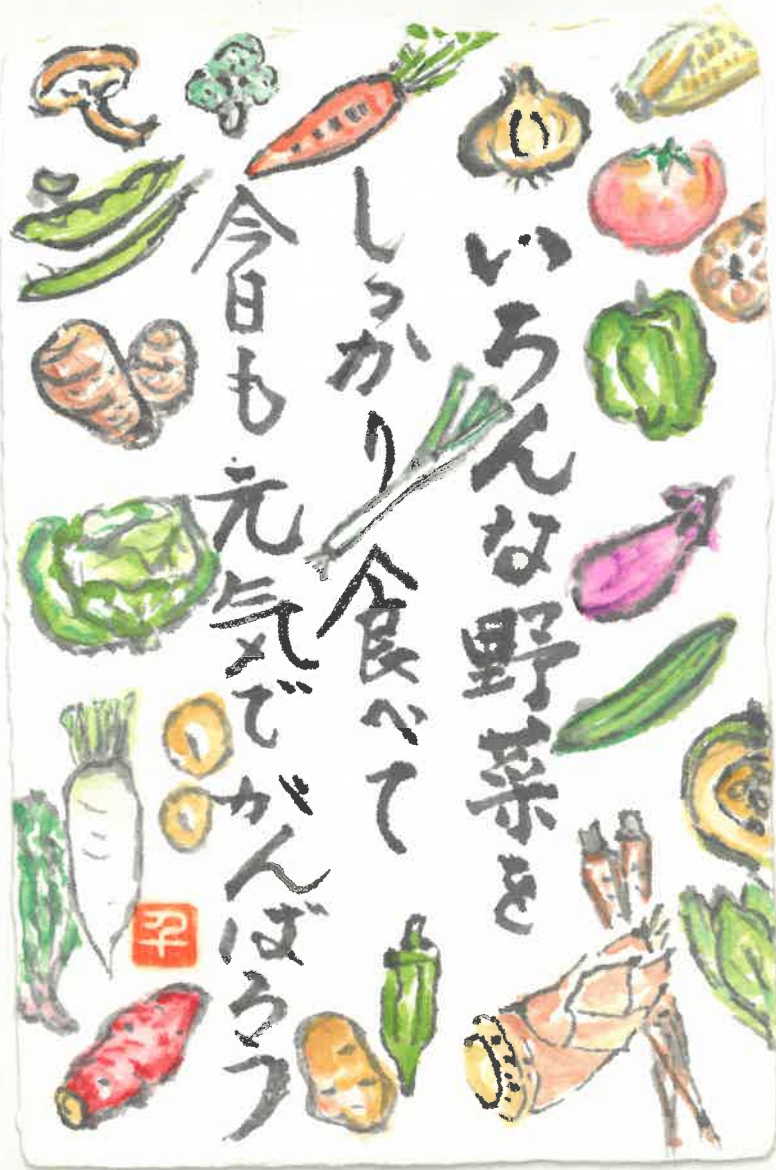 いろんな野菜を
しっかり食べて
今日も元気でがんばろう